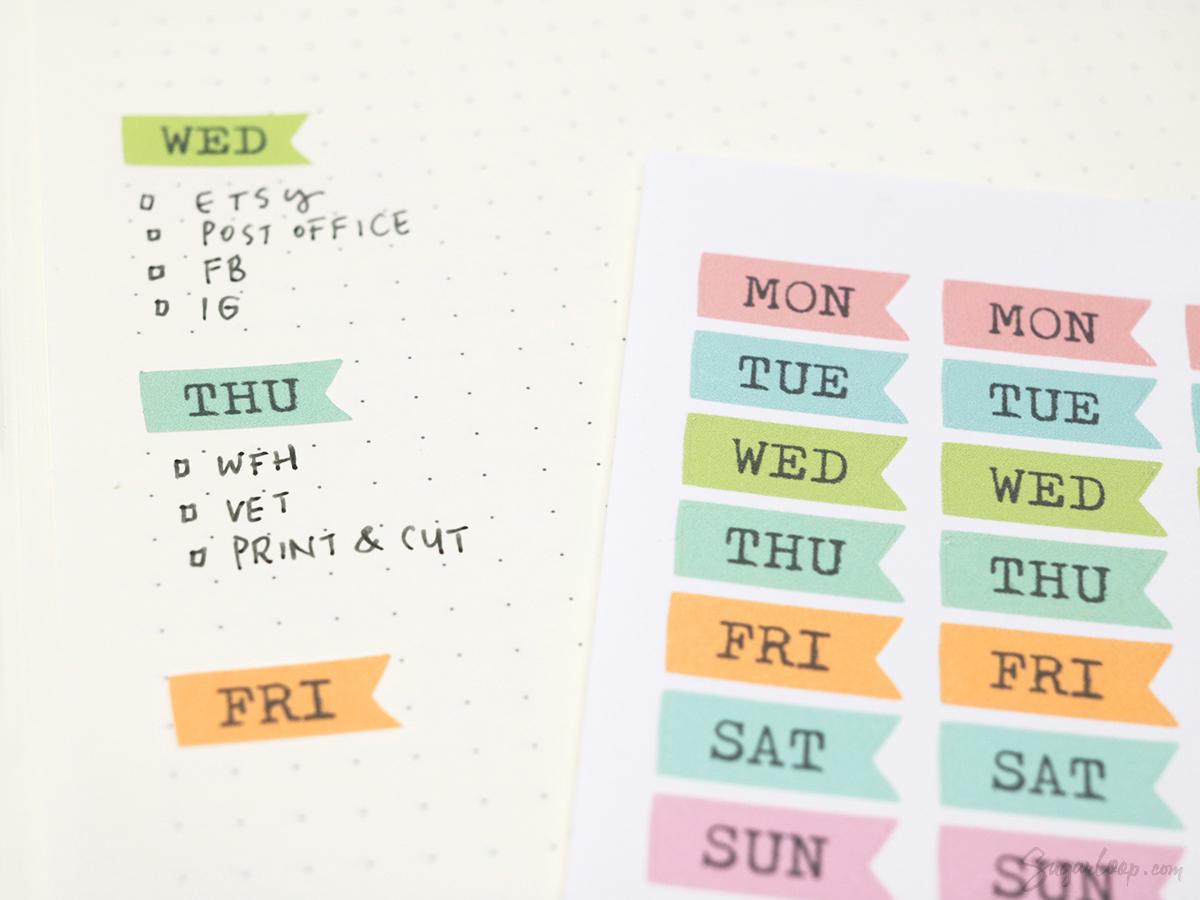 WED
ETSY
POST OFFICE
FB
IG
THU
WFH
VET
PRINT & CUT
FRI
MON MON
TUE TUE
WED WED
THU THU
FRI FRI
SAT SAT
SUN SUN
Sugarloop.com